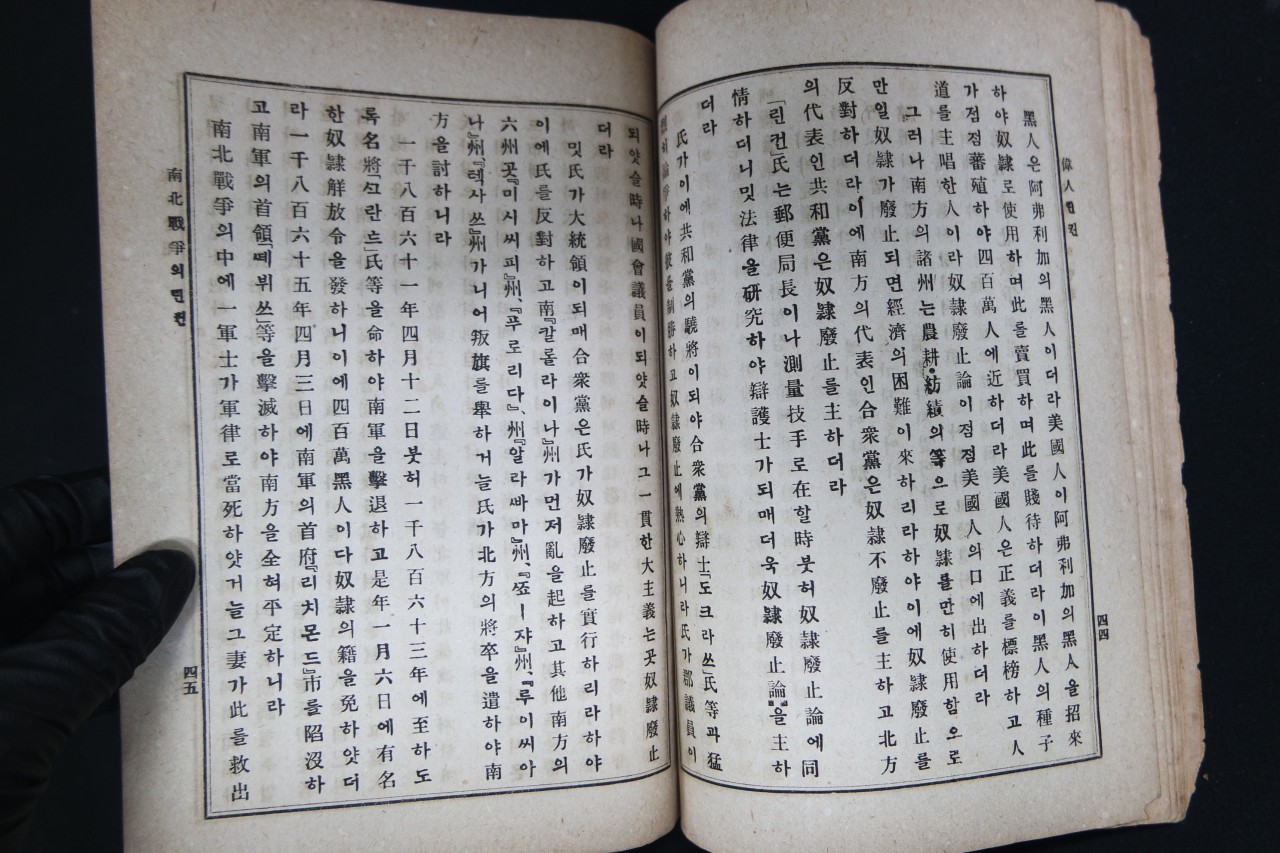 偉人린컨
黑人은阿弗利加의黑人이더라美國人이阿弗利加의黑人을招來
하야奴隷로使用하며此를賣買하며此를賤待하더라이黑人의種子
가점점蕃殖하야四百萬人에近하더라美國人은正義를標榜하고人
道를主唱한人이라奴隷廢止論이점점美國人의口에出하더라
그러나南方의諸州는農耕·紡績의等으로奴隷를만히使用함으로
만일奴隷가廢止되면經濟의困難이來하리라하야이에奴隷廢止를
反對하더라이에南方의代表인合衆黨은奴隷不廢止를主하고北方
의代表인共和黨은奴隷廢止를主하더라
「린컨」氏는郵便局長이나測量技手로在할時붓허奴隷廢止論에同
情하더니밋法律을硏究하야辯護士가되매더욱奴隷廢止論』을主하
더라
氏가이에共和黨의驍將이되야合衆黨의辯士「도크라쓰」氏等과猛
烈히論爭하야彼를制勝하고奴隷廢止에熱心하니라氏가郡議員이
四四
되얏슬時나國會議員이되얏슬時나그一貫한大主義는곳奴隷廢止
더라
밋氏가大統領이되매合衆黨은氏가奴隷廢止를實行하리라하야
이에氏를反對하고南『칼롤라이나』州가먼저亂을起하고其他南方의
六州곳『미시씨피』州、『푸로리다』、州『알라빠마』州、『쪼ー쟈』州、『루이씨아
나』州、『텍사쓰』州가니어叛旗를擧하거늘氏가北方의將卒을遣하야南
方을討하니라
一千八百六十一年四月十二日붓허一千八百六十三年에至하도
록名將「끄란트」氏等을命하야南軍을擊退하고是年一月六日에有名
한奴隷解放令을發하니이에四百萬黑人이다奴隷의籍을免하얏더
라一千八百六十五年四月三日에南軍의首府『리치몬드』市를陷沒하
고南軍의首領「떼뷔쓰」等을擊滅하야南方을全혀平定하니라
南北戰爭의中에一軍士가軍律로當死하얏거늘그妻가此를救出
南北戰爭의린컨
四五